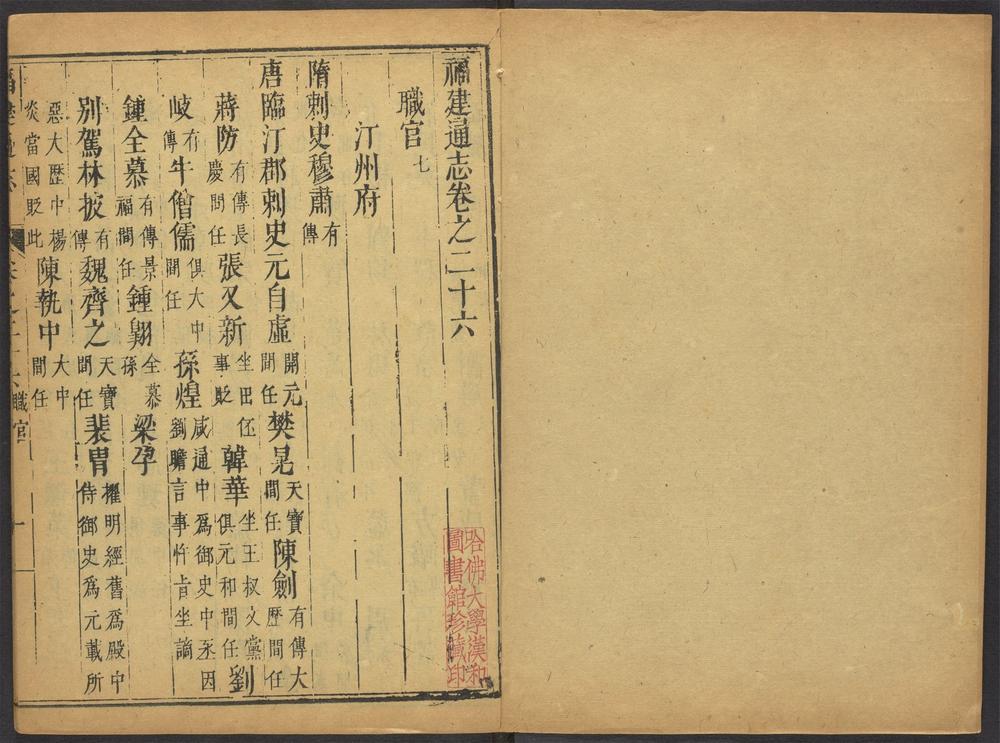 福建通志卷之二十六
職官七
汀州府
隋刺史穆肅有傳
唐臨汀郡刺史元自虛開元間任樊晃天寶間任陳劍有傳大歷間任
蔣防有傳長慶間任張又新坐田伾事貶韓華坐王叔文黨俱元和間任劉
岐有傳牛僧儒俱大中間任孫煌咸通中為御史中丞因劉瞻言事忤旨坐謫
鍾全慕有傳景福間任鍾翺全慕孫梁孕
別駕林披有傳魏齊之天寶間任裴冑擢明經舊為殿中侍御史為元載所
惡大歷中楊炎當國貶此陳執中大中間任
職官
哈佛大學漢和圖書館珍藏印